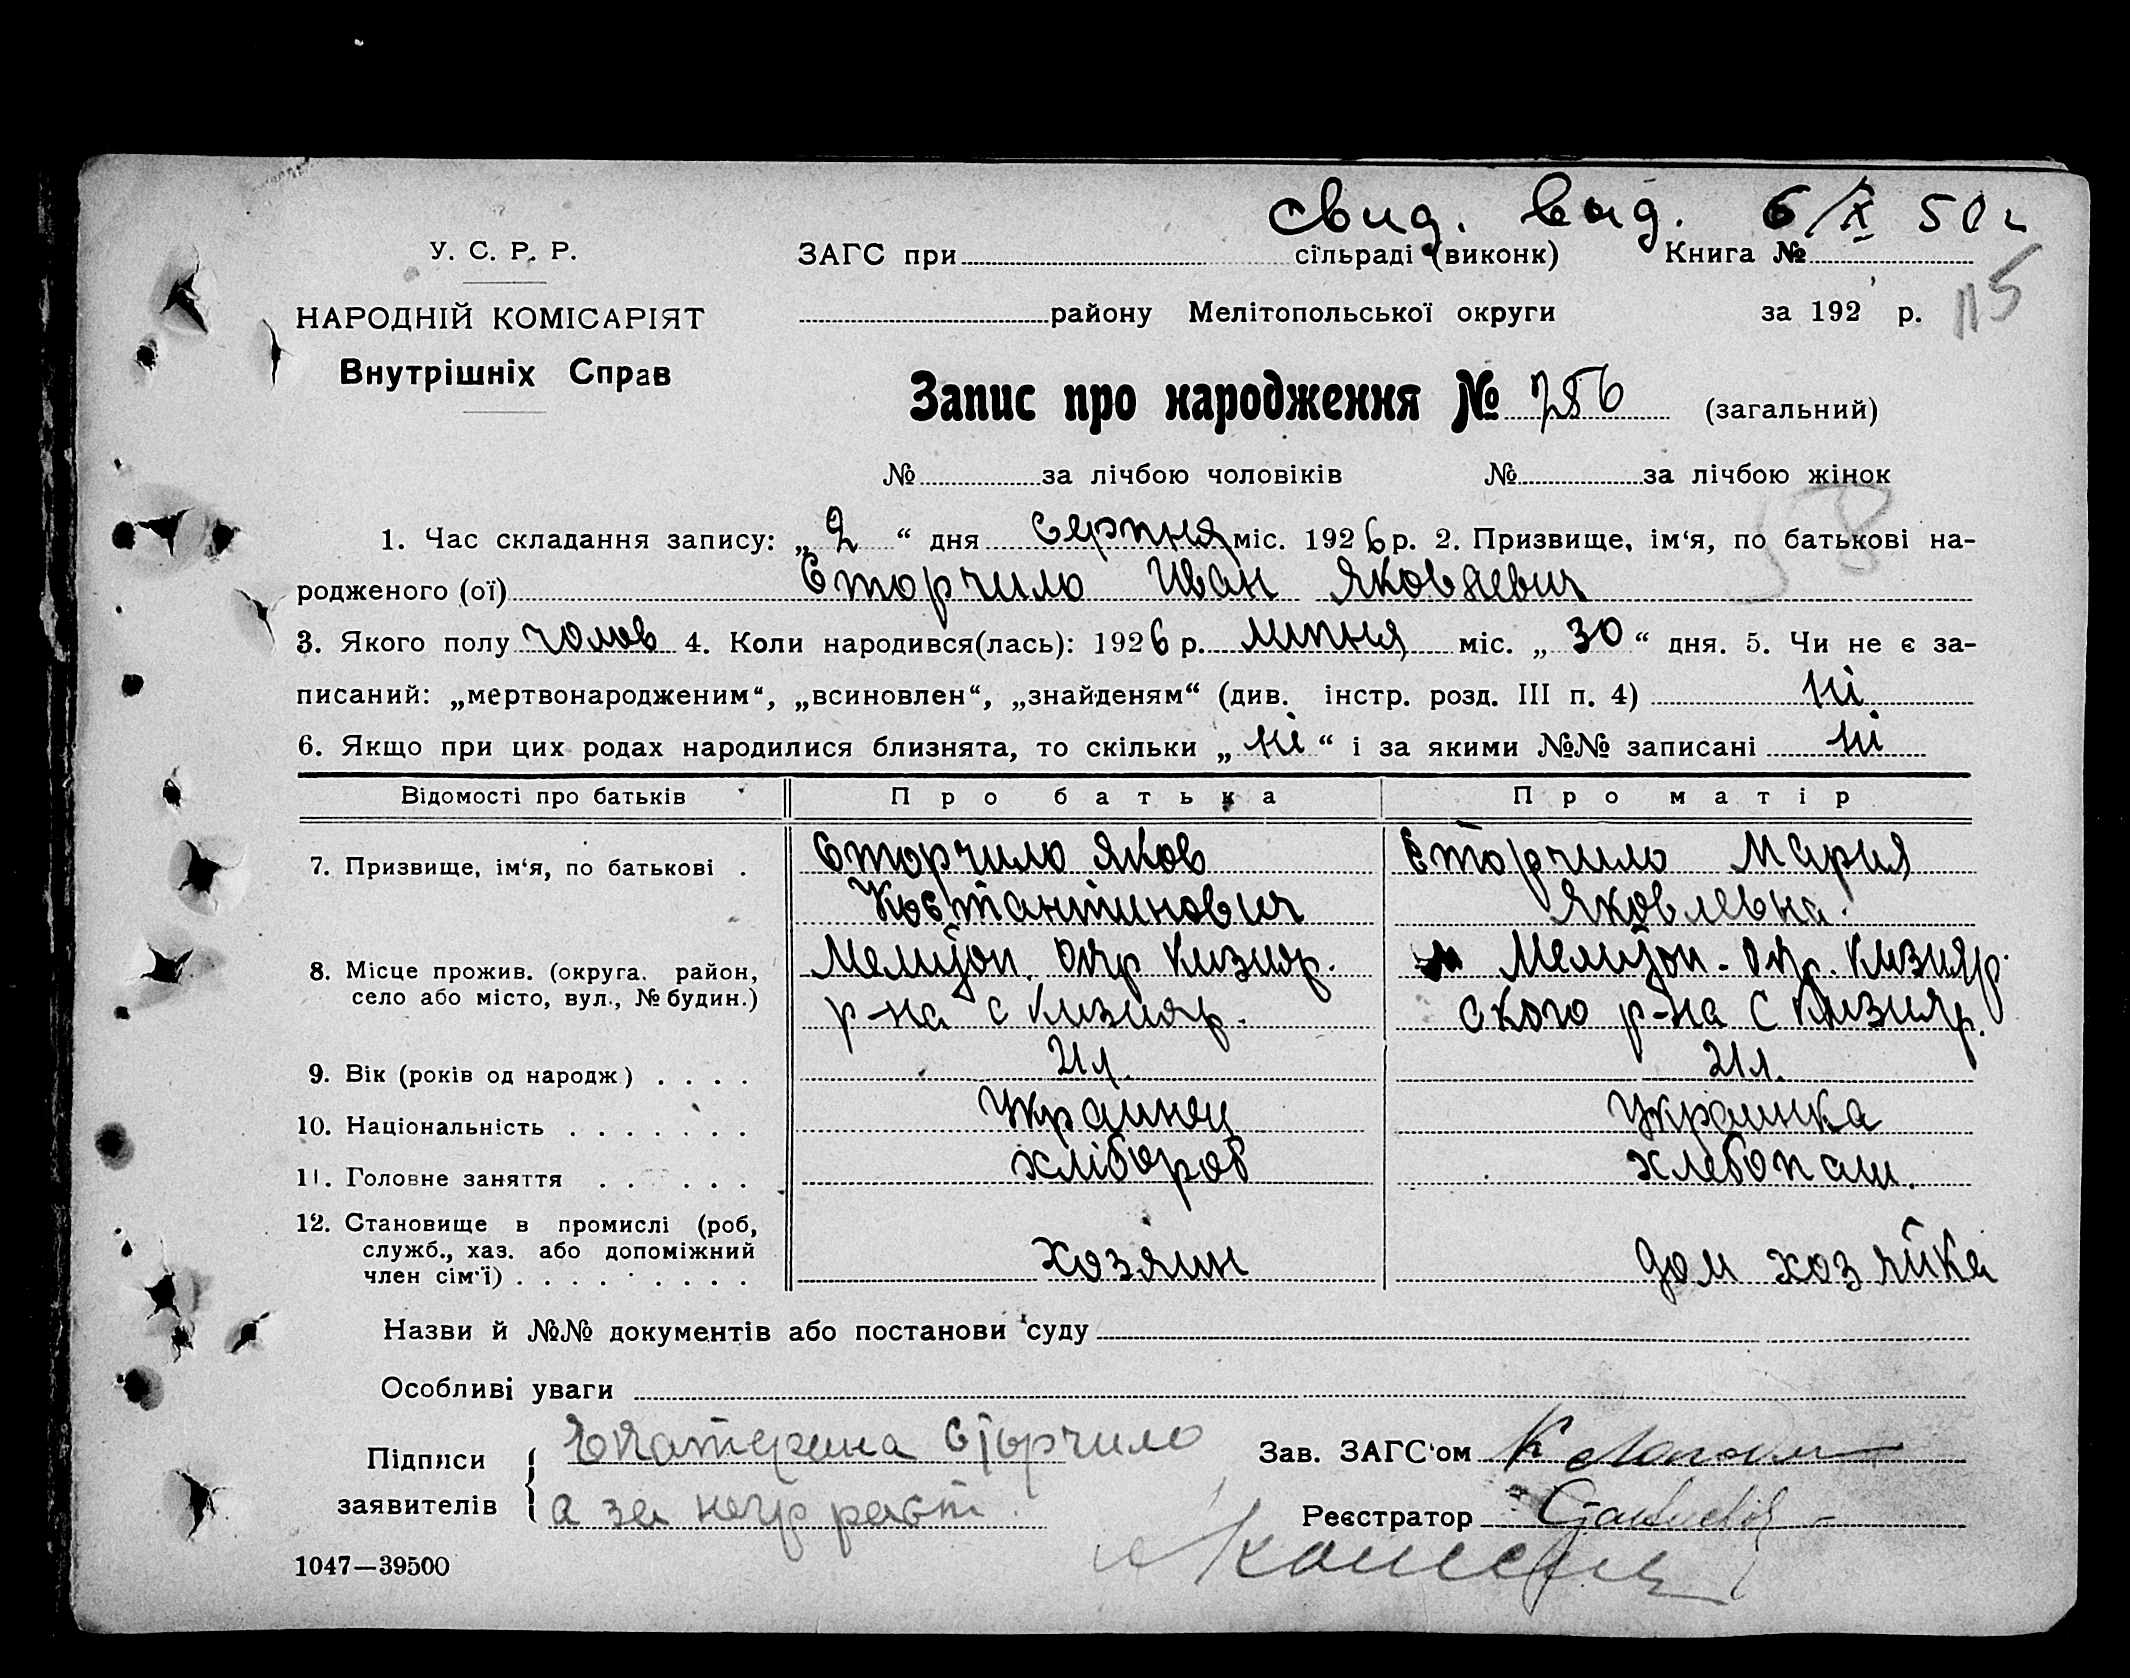 свид. выд. 6/X 50 г
У. С. Р. Р. ЗАГС при сільраді (виконк) Книга №
115
НАРОДНІЙ КОМІСАРІЯТ району Мелітопольської округи за 192 р.
Внутрішніх Справ
Запис про народження № 756 (загальний)
№ за лічбою чоловіків № за лічбою жінок
58
1. Час складання запису: „ 2 “ дня Серпня міс. 1926 р. 2. Призвище, ім‘я, по батькові на-
родженого (ої) Сторчило Иван Яковлевич
3. Якого полу чолов 4. Коли народився(лась): 1926 р. липня міс. „ 30 “ дня. 5. Чи не є за-
писаний: „мертвонародженим“, „всиновлен“, „знайденям“ (див. інстр. розд. III п. 4) ні
6. Якщо при цих родах народилися близнята, то скільки „ ні “ і за якими №№ записані ні
Відомості про батьків Про батька Про матір
7. Призвище, ім‘я, по батькові . Сторчило Яков Сторчило Мария
Костантинович Яковлевна.
8. Місце прожив. (округа. район, Мелитоп. окр Кизияр. Мелитоп. окр. Кизияр.
село або місто, вул., № будин.) р-на с Кизияр. ского р-на с Кизияр.
9. Вік (років од народж) . . . . 21 л. 21 л.
10. Національність . . . . . . . Украинец Украинка
11. Головне заняття . . . . . хлібороб хлебопаш.
12. Становище в промислі (роб,
служб., хаз. або допоміжний Хозяин дом хозяйка
член сім‘ї) . . . . . . . . .
Назви й №№ документів або постанови суду
Особливі уваги
Підписи Екатерина Сторчило Зав. ЗАГС‘ом
заявителів а за негр расп. Реєстратор
1047—39500